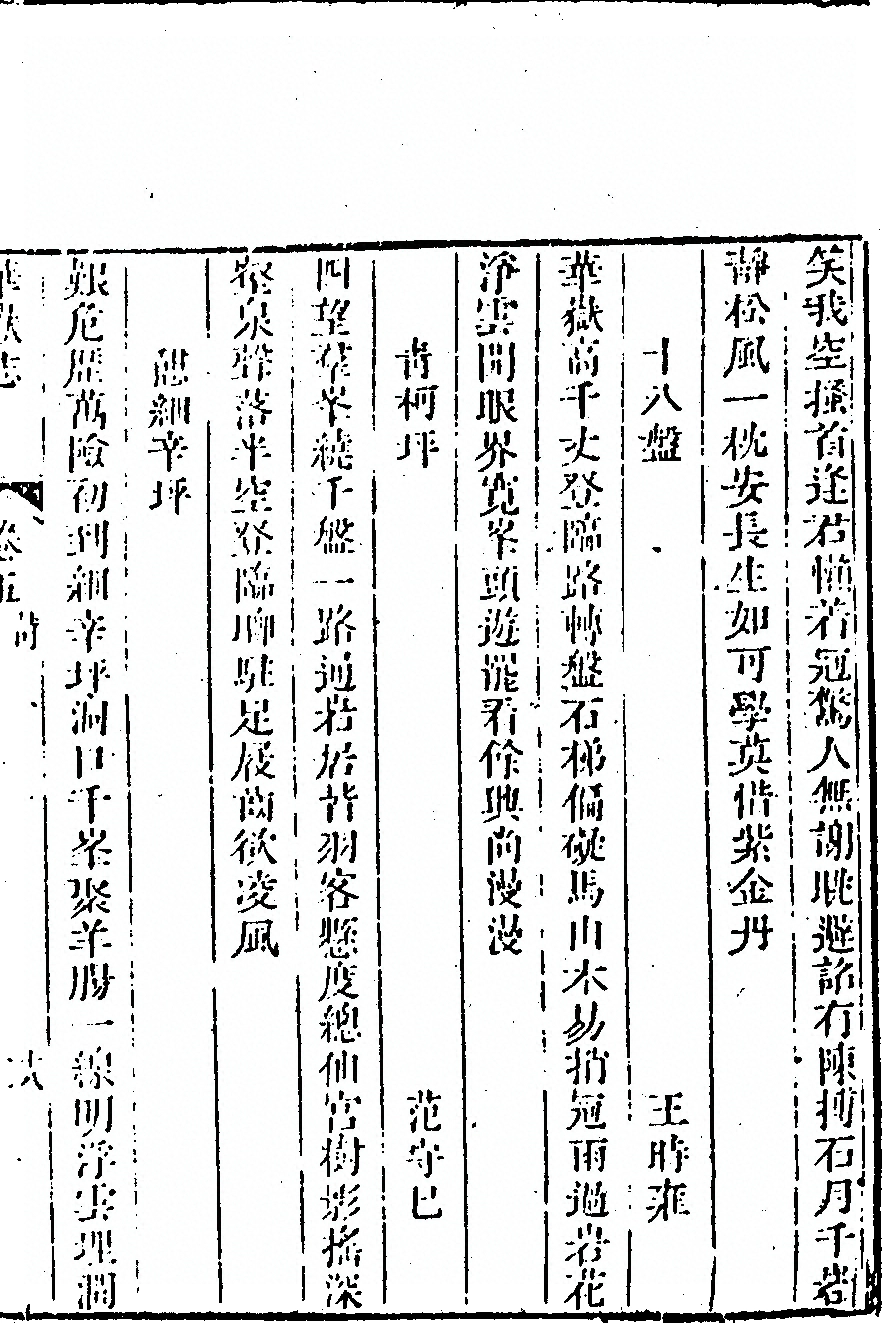 笑我空搔首逢君懶著冠驚人無謝眺避詔有陳摶石月千岩
靜松風一枕安長生如可學莫惜紫金丹
十八盤　王時雍
華嶽高千丈登臨路轉盤石梯偏礙馬山木易捎冠雨過岩花
淨雲開眼界寬峯頭遊罷看餘興尚漫漫
青柯坪　范守巳
四望羣峯繞千盤一路通岩居皆羽客懸度總仙宮樹影搖深
壑泉聲落半空登臨聊駐足屐齒欲凌風
憩細辛坪
艱危歷萬險初到細辛坪洞口千峯聚羊腸一線明浮雲埋澗
華嶽志　卷五　詩　六